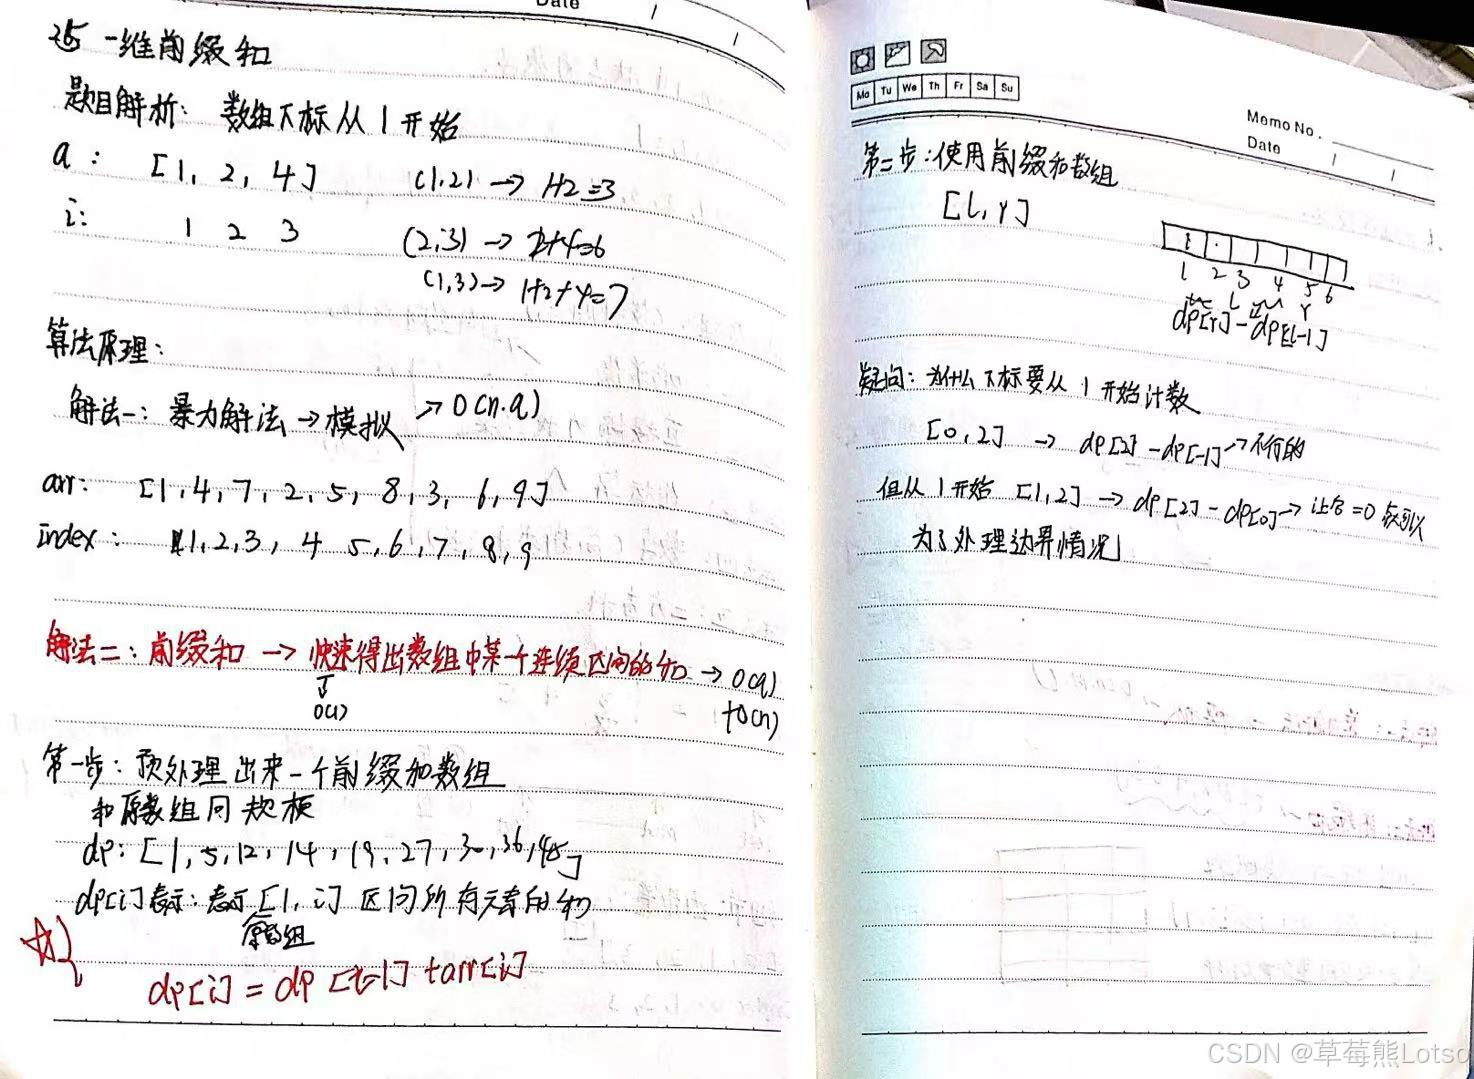 Date
25 一维前缀和
题目解析: 数组下标从 1 开始
a: [1, 2, 4] (1,2) → 1+2=3
i: 1 2 3 (2,3) → 2+4=6
(1,3) → 1+2+4=7
算法原理:
解法一: 暴力解法 → 模拟 → O(n·q)
arr: [1, 4, 7, 2, 5, 8, 3, 6, 9]
index: 1, 2, 3, 4 5, 6, 7, 8, 9
解法二: 前缀和 → 快速得出数组中某一个连续区间的和 → O(q)
O(1) +O(n)
第一步: 预处理出来一个前缀和数组
和原数组同规模
dp: [1, 5, 12, 14, 19, 27, 30, 36, 45]
dp[i]表示: 表示 [1, i] 区间所有元素的和
原数组
dp[i] = dp[i-1] +arr[i]
Mo Tu We Th Fr Sa Su
Memo No.
Date
第二步: 使用前缀和数组
[l, r]
1 2 3 4 5 6
L r
dp[r] - dp[l-1]
疑问: 为什么下标要从 1 开始计数
[0, 2] → dp[2] - dp[-1] → 不行的
但从 1 开始 [1, 2] → dp[2] - dp[0] → 让它=0 就可以
为了处理边界情况
CSDN @草莓熊Lotso